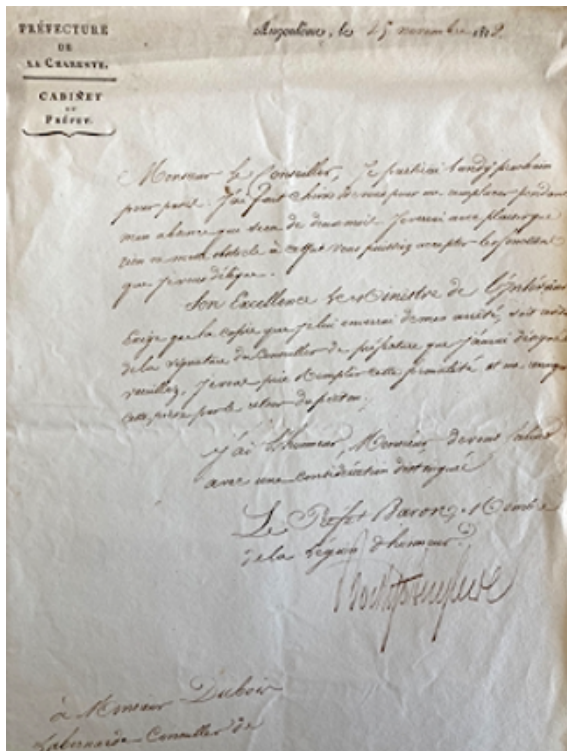 PRÉFECTURE
DE
LA CHARENTE.
CABINET
DU
PRÉFET.
Angoulême, le 25 novembre 181
Monsieur le Conseiller, Je partirai lundy prochain
pour paris. J'ai fait choix de vous pour me remplacer pendant
mon absence que sera de deux mois. Je verrai avec plaisir que
rien ne mette obstacle à ce que vous puissiez accepter les fonctions
que je vous délègue.
Son Excellence Le Ministre de l'Intérieur
Exige que la copie que je lui enverrai de mon arrêté, soit
de la signature du Conseiller de préfecture que j'aurai désigné
veuillez, je vous prie remplir cette formalité et me
cette pièce par le retour du
J'ai l'honneur, Monsieur de vous saluer
avec une considération distinguée
Le Préfet Baron, Membre
de la Légion d'honneur
à Monsieur Dubois
Labernarde Conseiller de